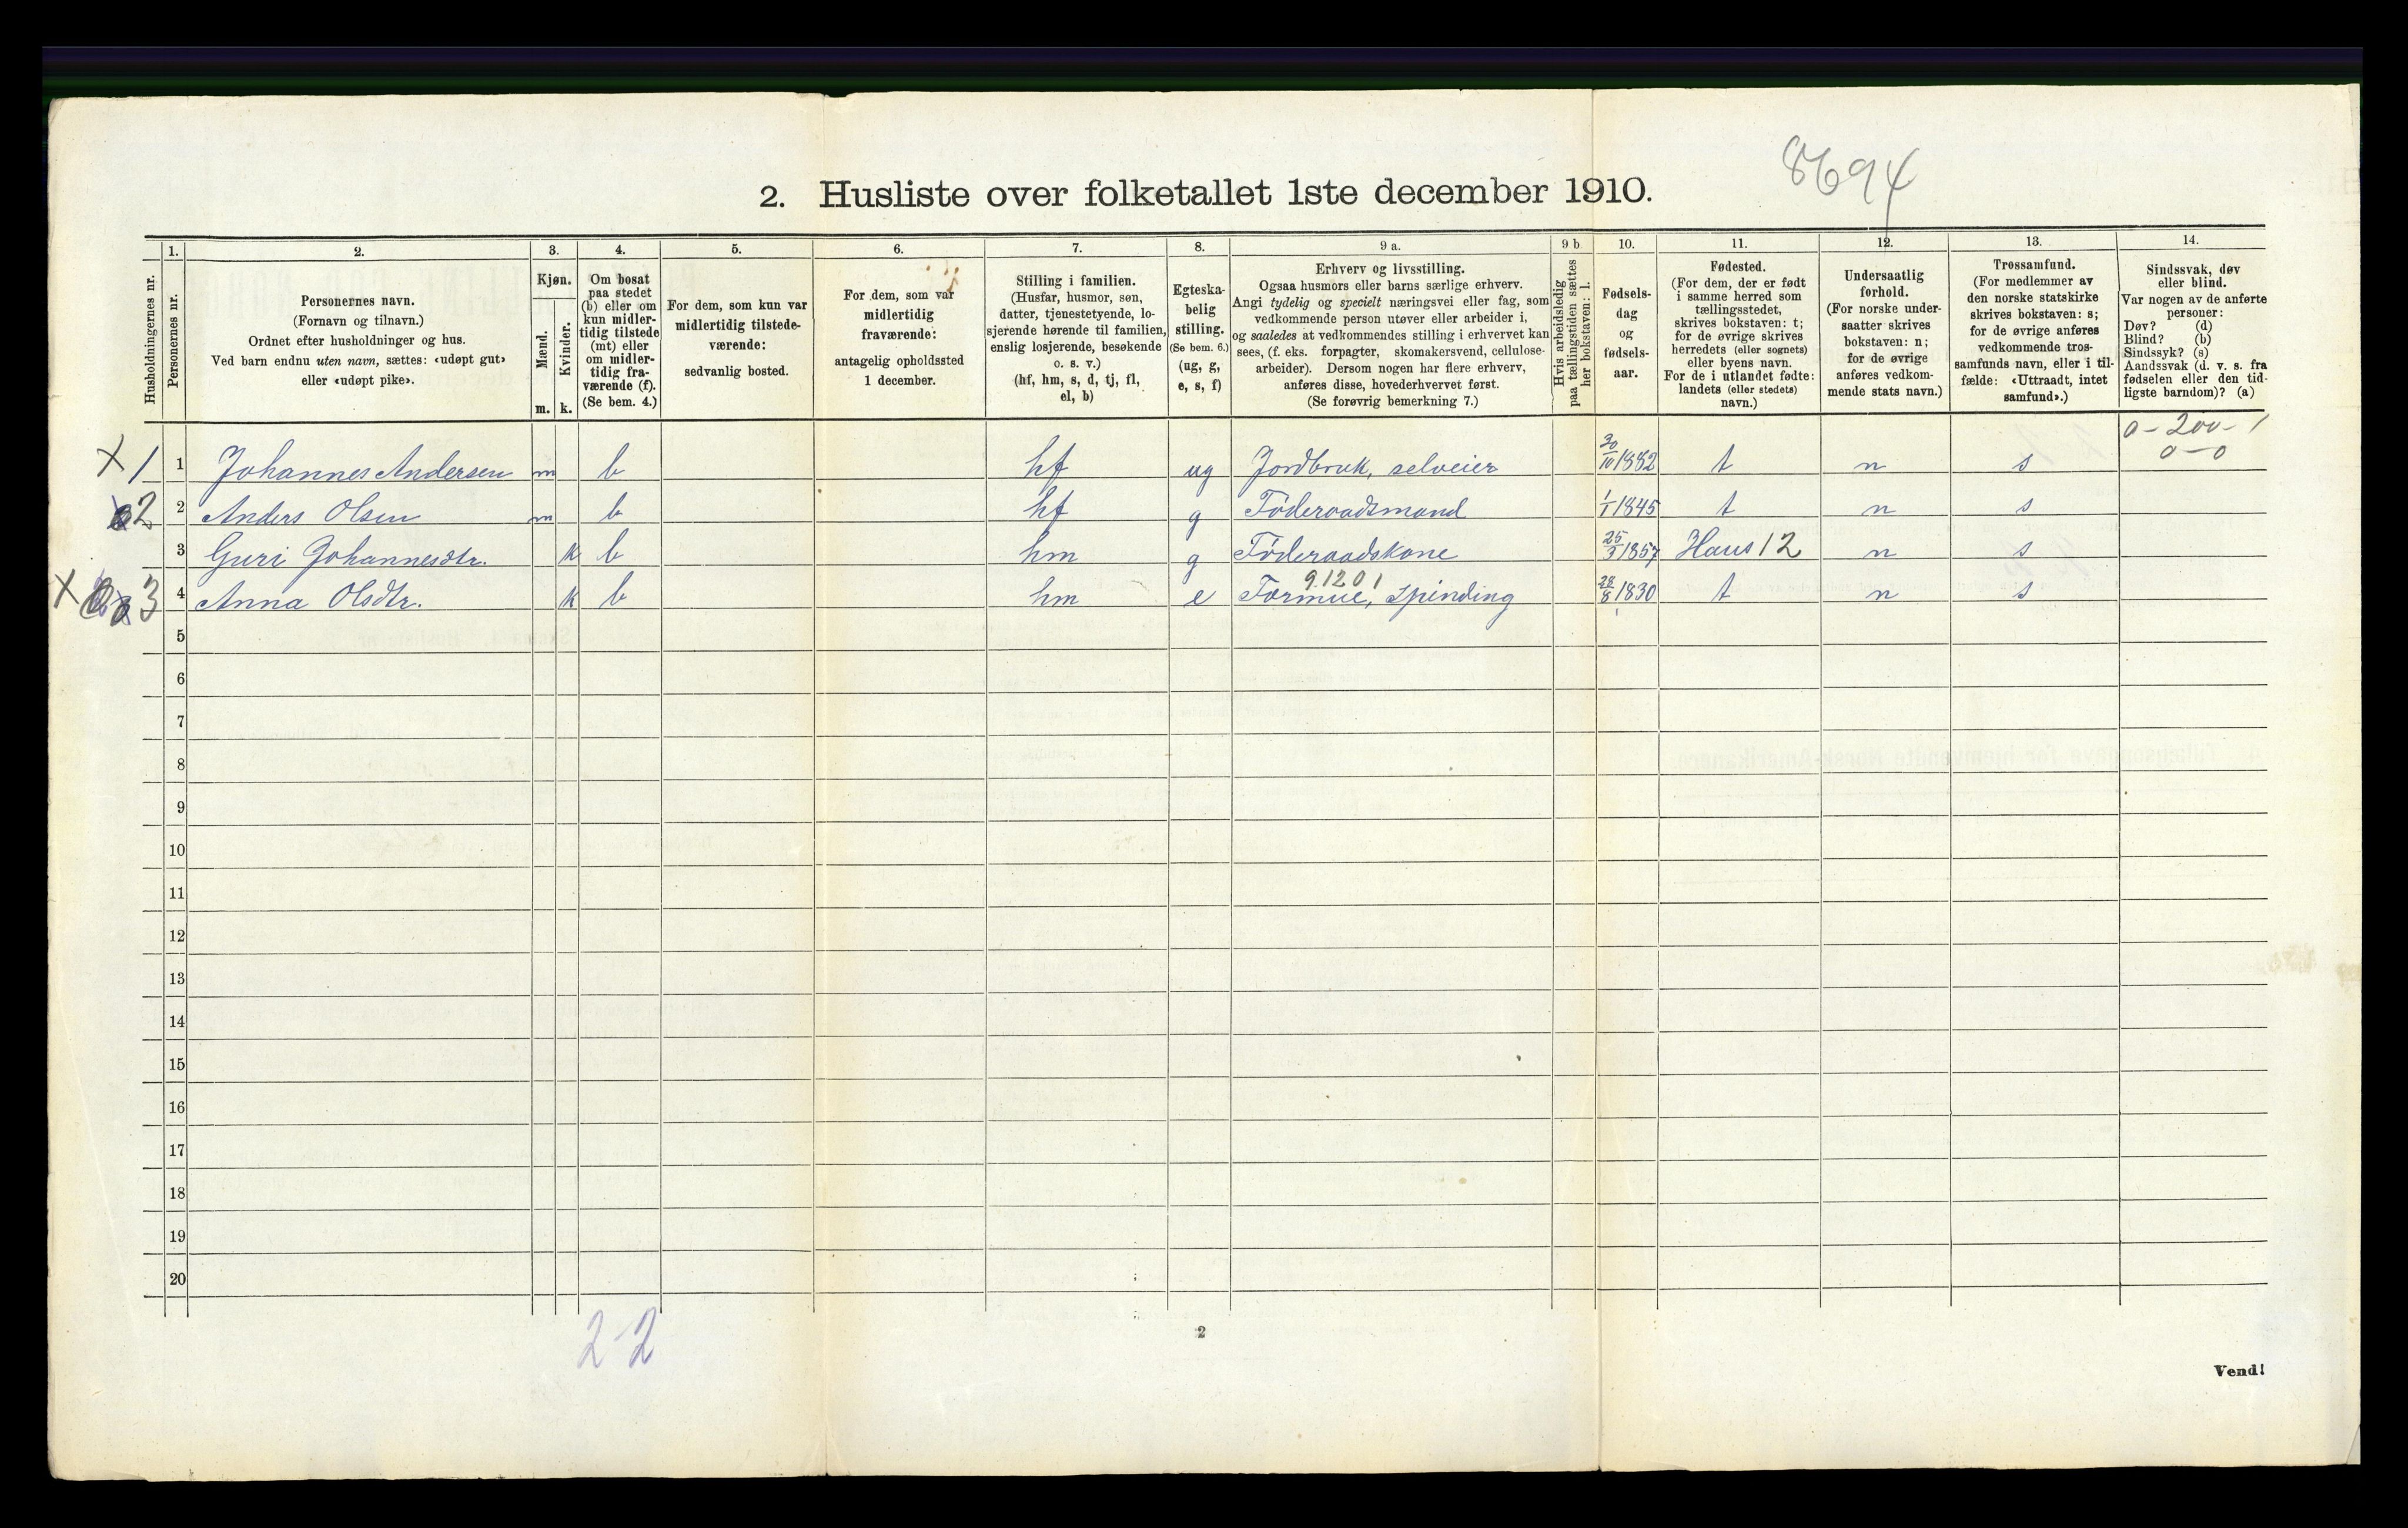 8694
2. Husliste over folketallet 1ste december 1910.
Husholdningernes nr.
1.
Personernes nr.
2.
Personernes navn.
(Fornavn og tilnavn.)
Ordnet efter husholdninger og hus.
Ved barn endnu uten navn, sættes: «udøpt gut»
eller «udøpt pike».
3.
Kjøn.
Mænd.
Kvinder.
m. k.
4.
Om bosat
paa stedet
(b) eller om
kun midler-
tidig tilstede
(mt) eller
om midler-
tidig fra-
værende (f).
(Se bem. 4.)
5.
For dem, som kun var
midlertidig tilstede-
værende:
sedvanlig bosted.
6.
For dem, som var
midlertidig
fraværende:
antagelig opholdssted
1 december.
7.
Stilling i familien.
(Husfar, husmor, søn,
datter, tjenestetyende, lo-
sjerende hørende til familien,
enslig losjerende, besøkende
o. s. v.)
(hf, hm, s, d, tj, fl,
el, b)
8.
Egteska-
belig
stilling.
(Se bem. 6.)
(ug, g,
e, s, f)
9 a.
Erhverv og livsstilling.
Ogsaa husmors eller barns særlige erhverv.
Angi tydelig og specielt næringsvei eller fag, som
vedkommende person utøver eller arbeider i,
og saaledes at vedkommendes stilling i erhvervet kan
sees, (f. eks. forpagter, skomakersvend, cellulose-
arbeider). Dersom nogen har flere erhverv,
anføres disse, hovederhvervet først.
(Se forøvrig bemerkning 7.)
9 b
Hvis arbeidsledig
paa tællingstiden sættes
her bokstaven: l.
10.
Fødsels-
dag
og
fødsels-
aar.
11.
Fødested.
(For dem, der er født
i samme herred som
tællingsstedet,
skrives bokstaven: t;
for de øvrige skrives
herredets (eller sognets)
eller byens navn.
For de i utlandet fødte:
landets (eller stedets)
navn.)
12.
Undersaatlig
forhold.
(For norske under-
saatter skrives
bokstaven: n;
for de øvrige
anføres vedkom-
mende stats navn.)
13.
Trossamfund.
(For medlemmer av
den norske statskirke
skrives bokstaven: s;
for de øvrige anføres
vedkommende tros-
samfunds navn, eller i til-
fælde: «Uttraadt, intet
samfund».)
14.
Sindssvak, døv
eller blind.
Var nogen av de anførte
personer:
Døv? (d)
Blind? (b)
Sindssyk? (s)
Aandssvak (d. v. s. fra
fødselen eller den tid-
ligste barndom)? (a)
0-200-1
0-0
X 1 1 Johannes Andersen m b hf ug Jordbruk, selveier 30/10 1882 t n s
2 2 Anders Olsen m b hf g Føderaadsmand 1/1 1845 t n s
3 Guri Johannesdtr. k b hm g Føderaadskone 25/3 1857 Haus 12 n s
91201
X 3 4 Anna Olsdtr. k b hm e Formue, spinding 28/8 1830 t n s
5
6
7
8
9
10
11
12
13
14
15
16
17
18
19
20
2-2
2
Vend!